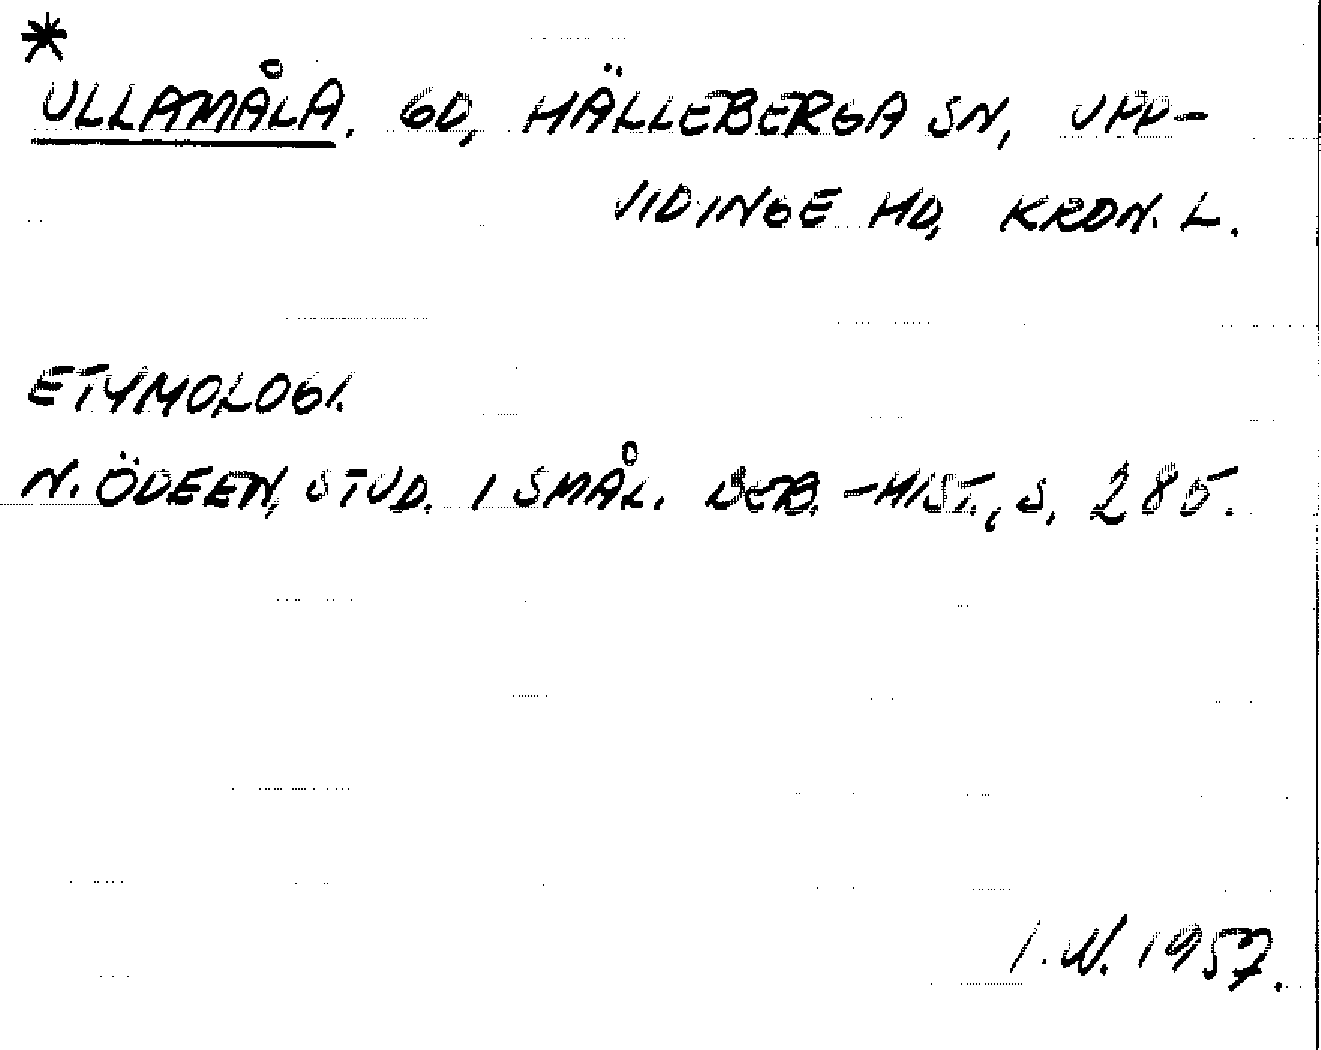 *
ULLAMÅLA. GD, HÄLLEBERGA SN, UPP-
VIDINGE HD, KRON. L.
ETYMOLOGI.
N. ÖDEEN, STUD. I SMÅL. BEB.-HIST., S. 285.
I. N. 1957.